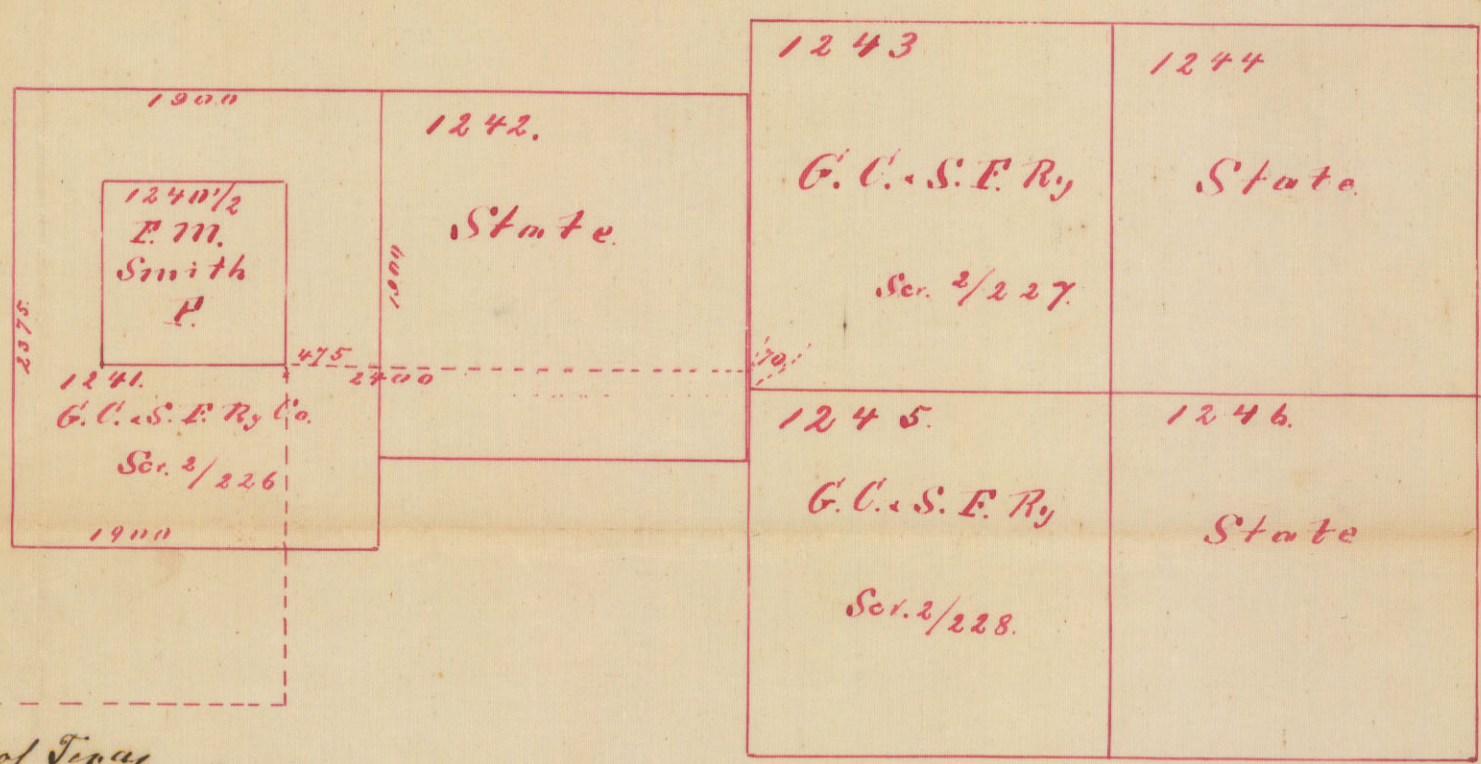 1900
1240 1/2
F. M.
Smith
P.
2375
475
1241.
G. C. & S. F. Ry Co.
Scr. 2/226
1900
1242.
State.
1900
2400
70
1243
G. C. & S. F. Ry
Scr. 2/227.
1244
State.
1245.
G. C. & S. F. Ry
Scr. 2/228.
1246.
State
of Texas